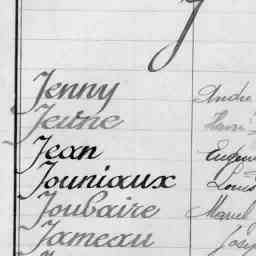 Jenny André
Jeune Henri
Jean Eugène
Jouniaux Louis
Joubaire Marcel
Jameau Josep